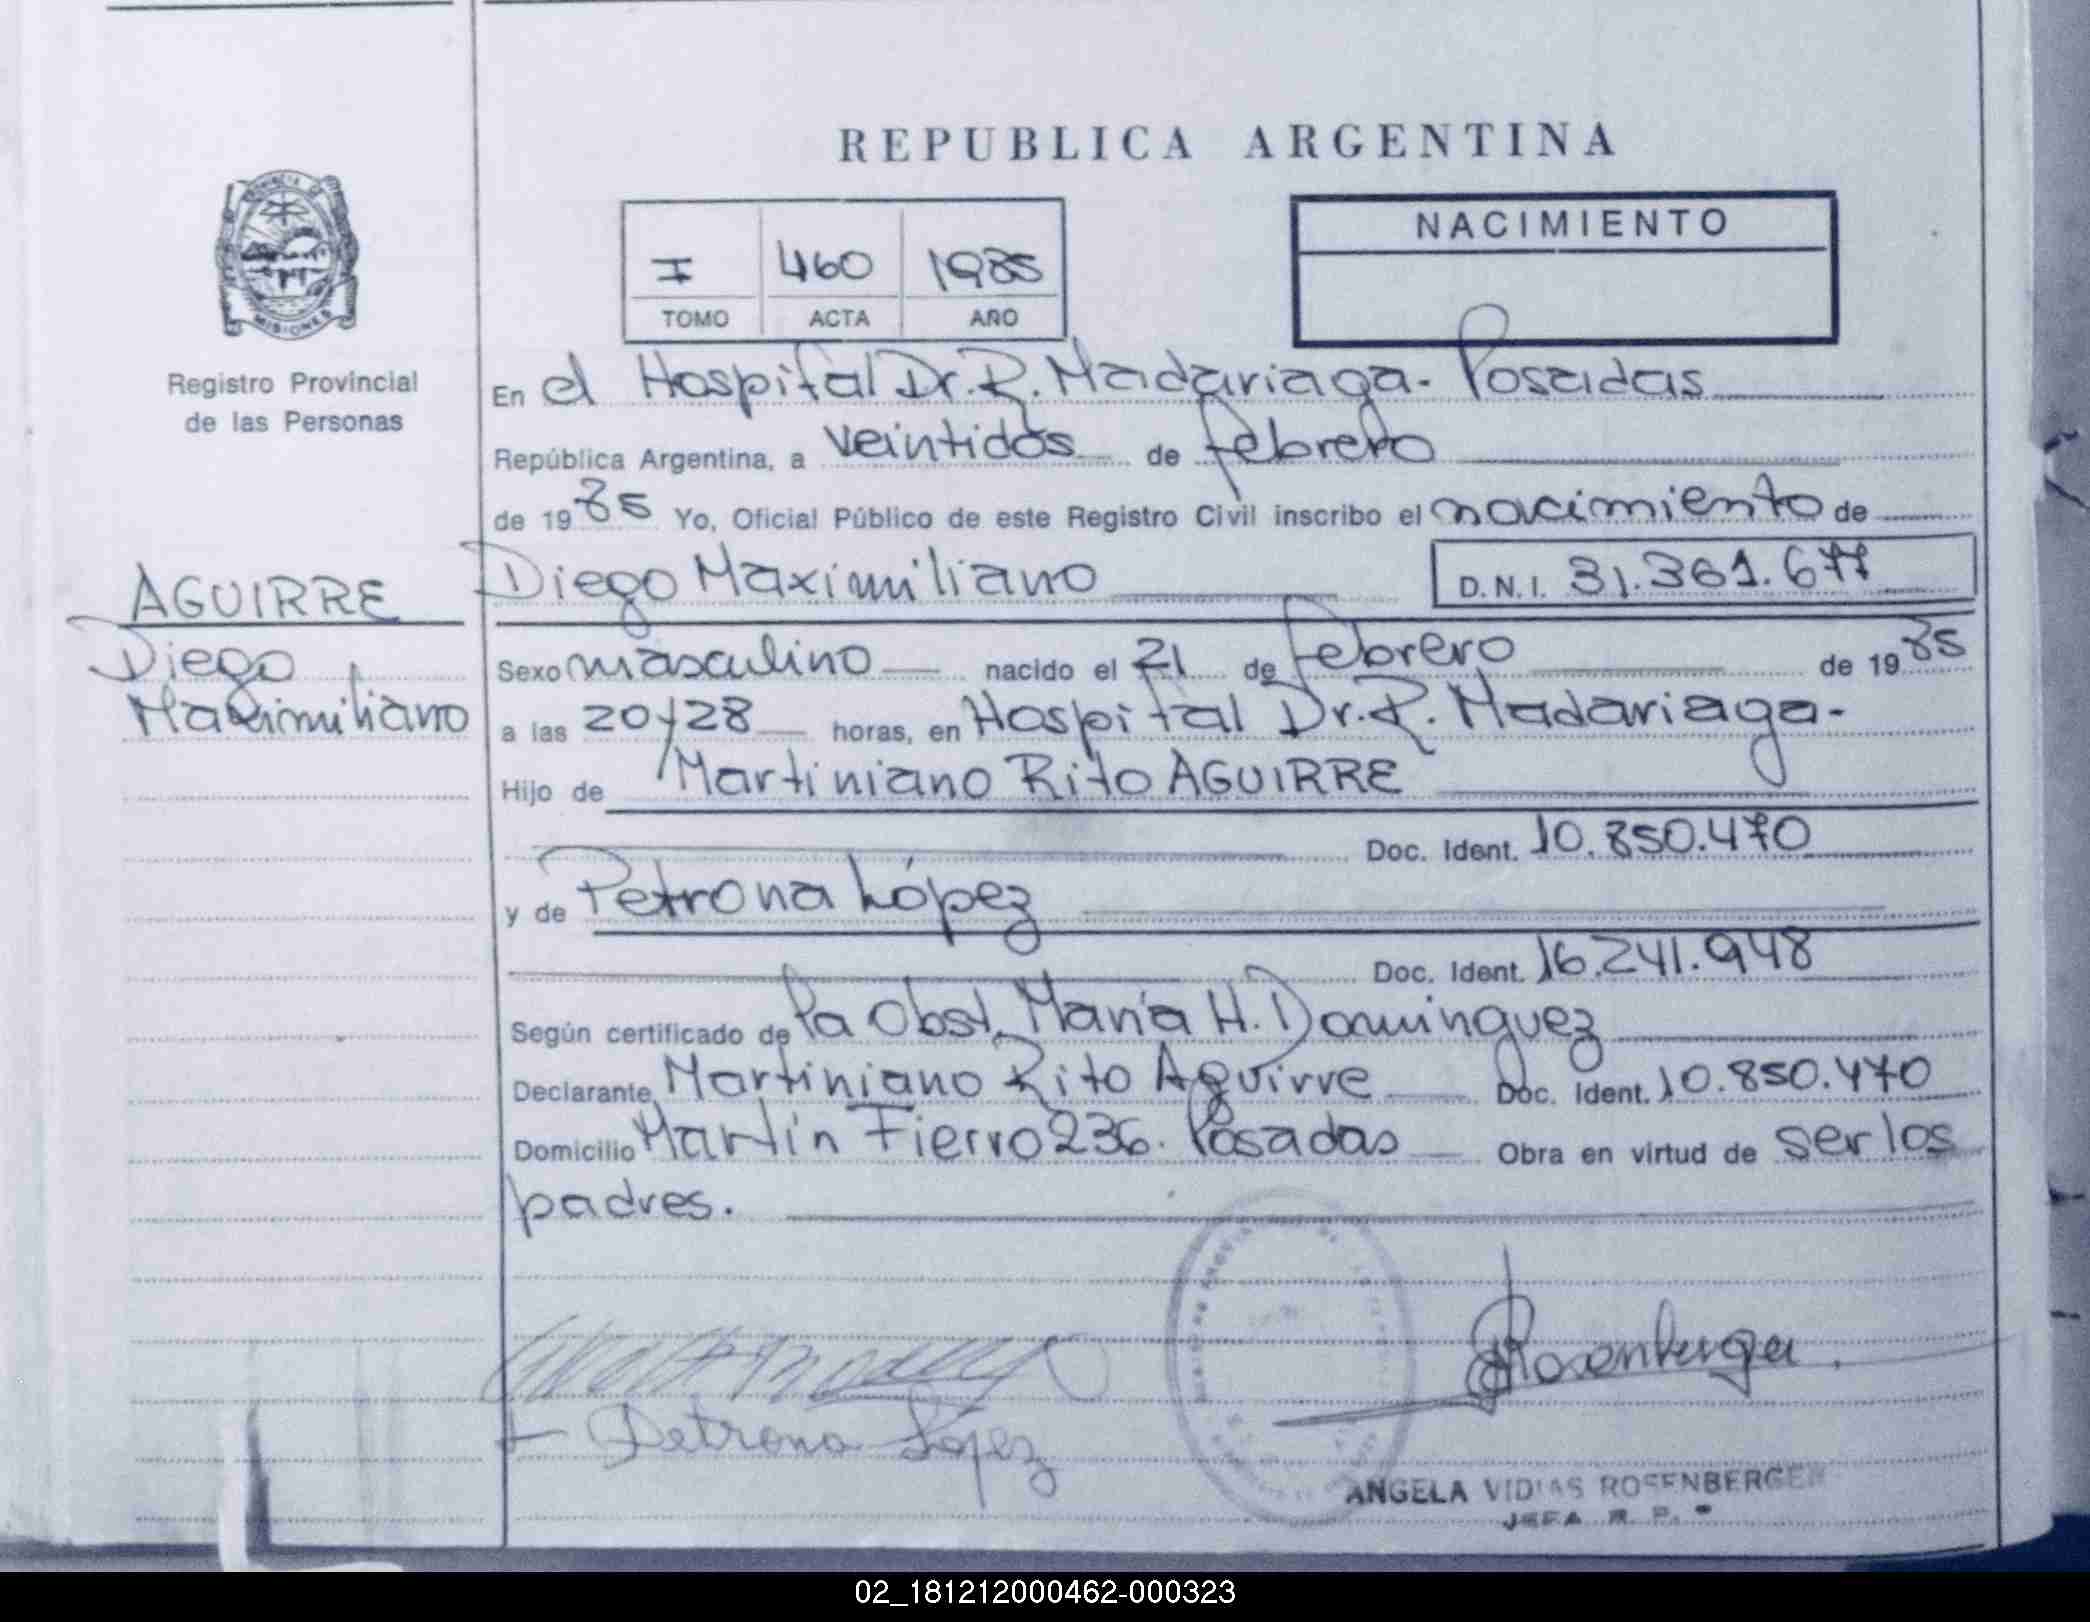 REPUBLICA ARGENTINA
PROVINCIA DE
MISIONES
Registro Provincial
de las Personas
I 460 1985
TOMO ACTA AÑO
NACIMIENTO
En el Hospital Dr. R. Madariaga - Posadas
República Argentina, a veintidós de febrero
de 1985 Yo, Oficial Público de este Registro Civil inscribo el nacimiento de
Diego Maximiliano D.N.I. 31.361.677
AGUIRRE
Diego
Maximiliano
Sexo masculino nacido el 21 de febrero de 1985
a las 20/28 horas, en Hospital Dr. R. Madariaga-
Hijo de Martiniano Rito AGUIRRE
Doc. Ident. 10.850.470
y de Petrona López
Doc. Ident. 16.241.948
Según certificado de la Obst. María H. Dominguez
Declarante Martiniano Rito Aguirre Doc. Ident. 10.850.470
Domicilio Martín Fierro 236. Posadas Obra en virtud de ser los
padres.
Rosenberger
+ Petrona López
ANGELA VIDIAS ROSENBERGER
JEFA R. P.
02_181212000462-000323